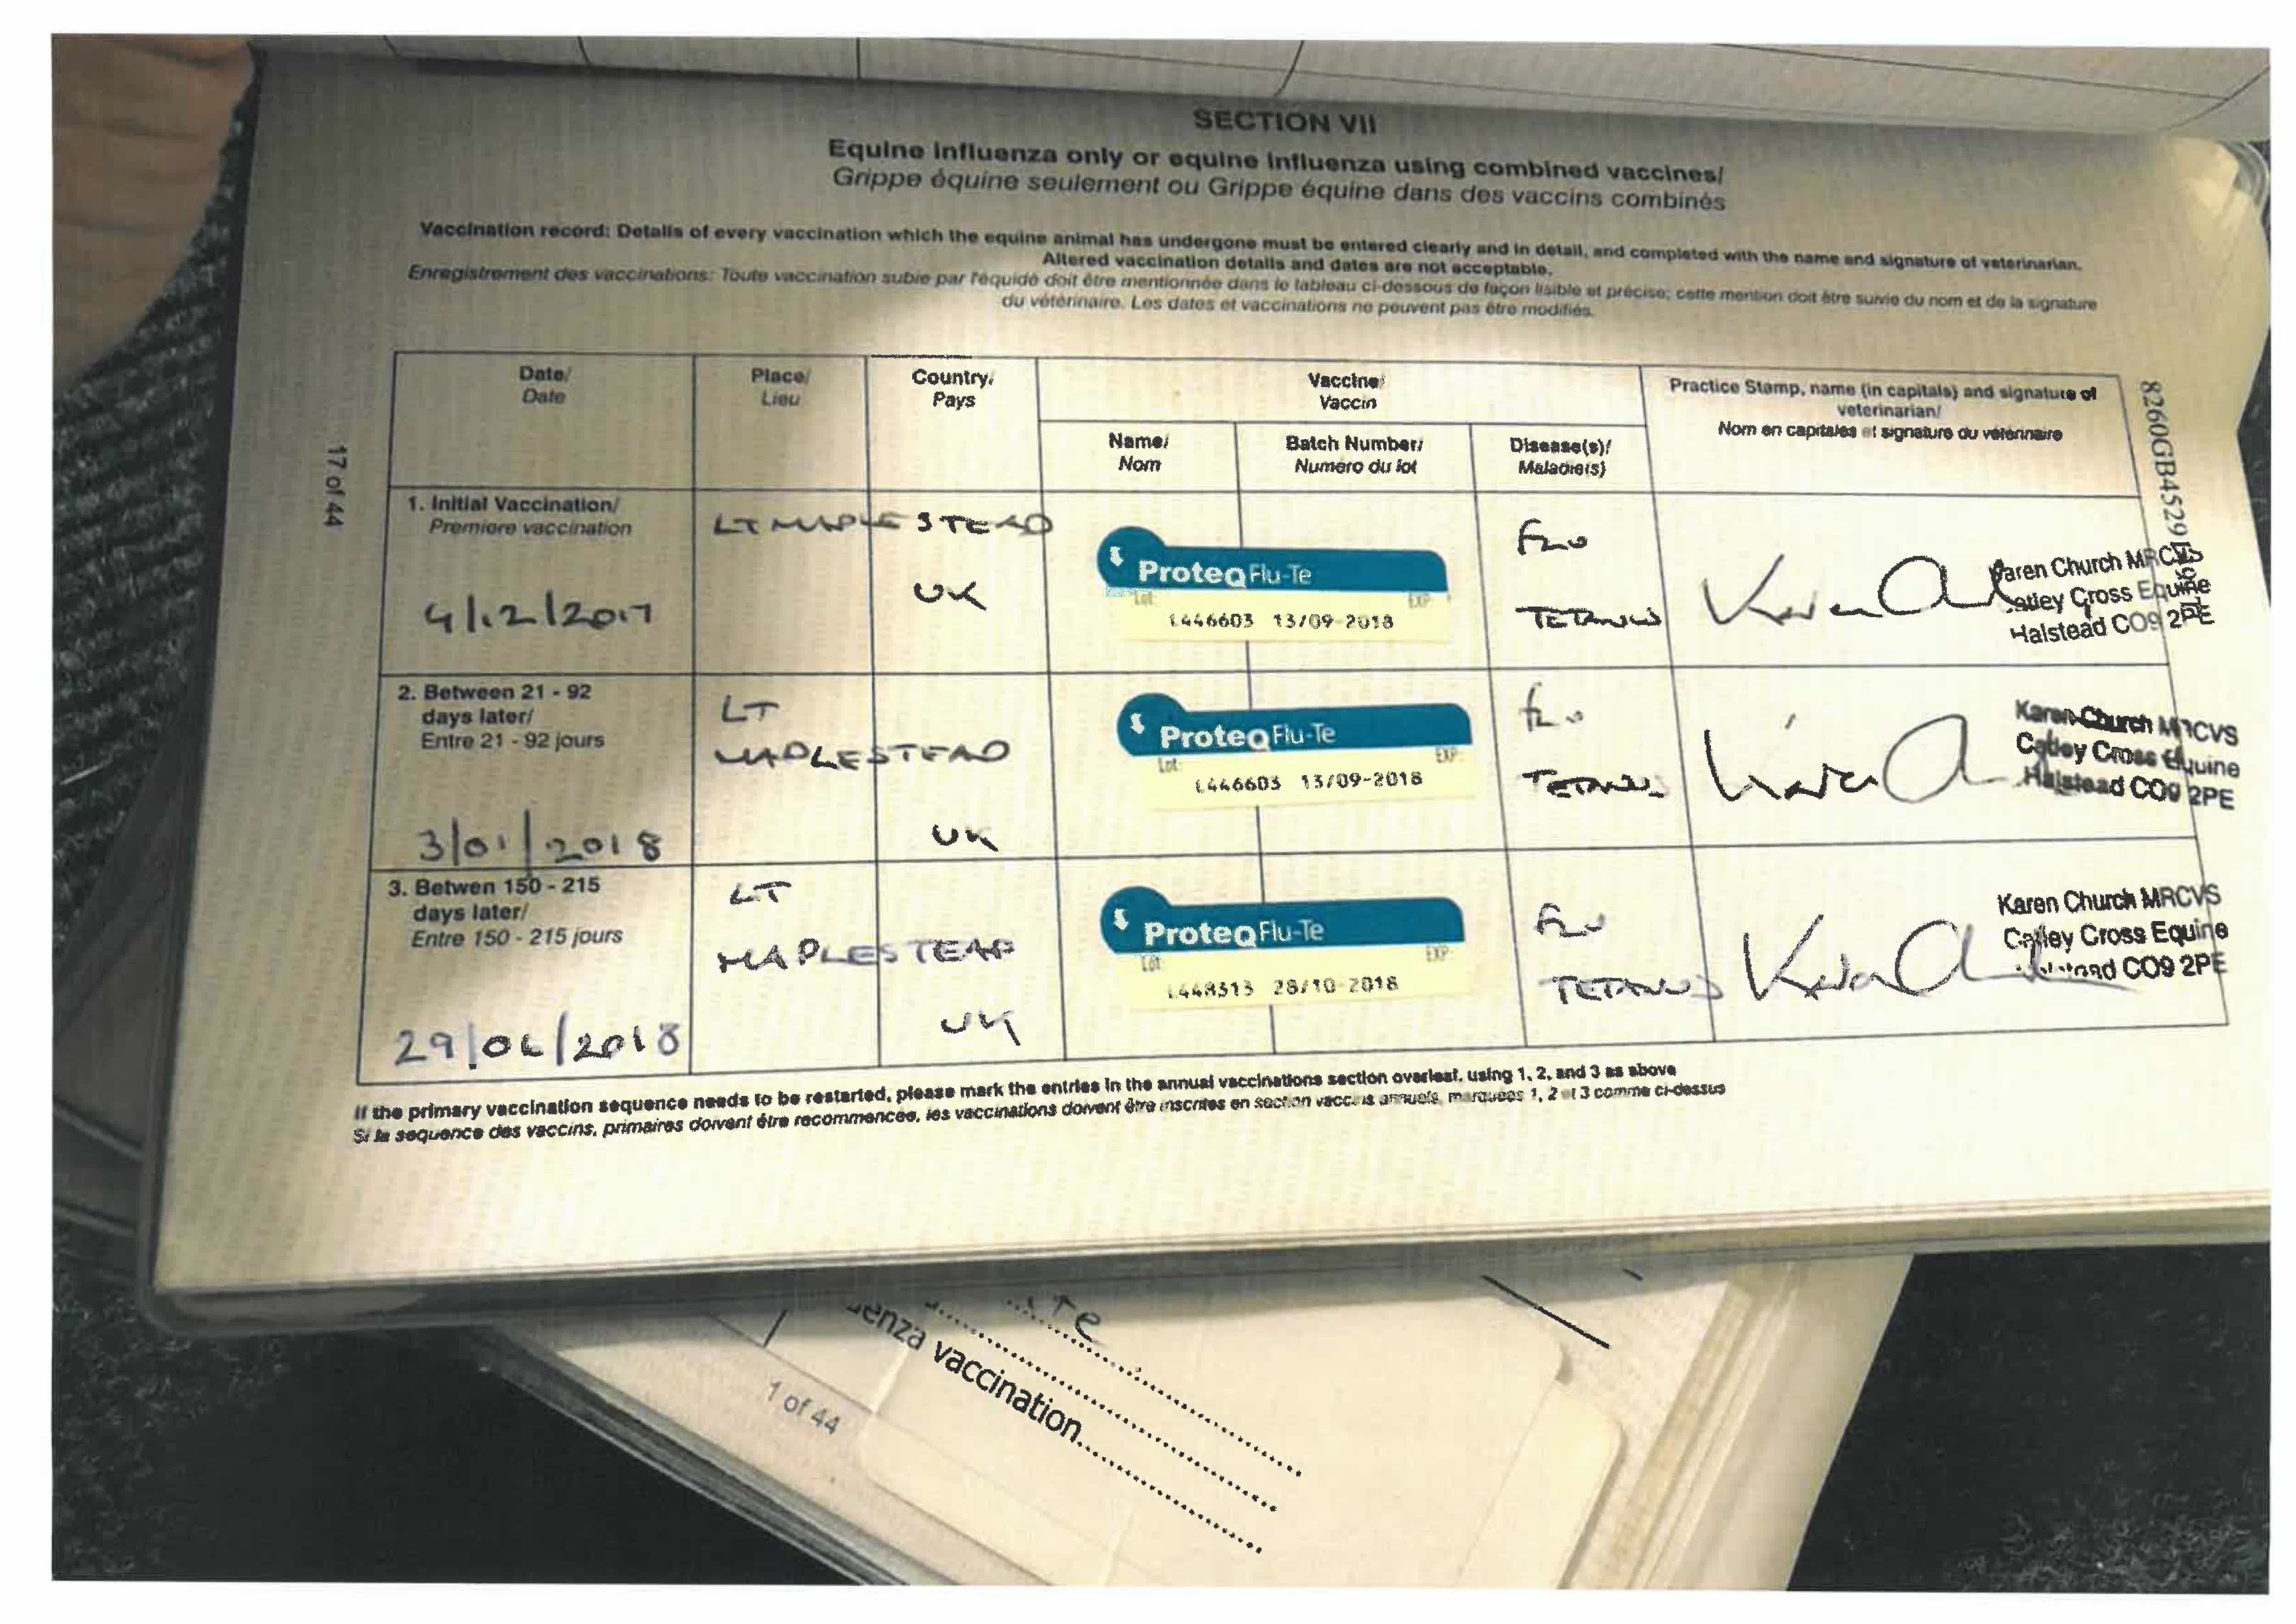 SECTION VII
Equine Influenza only or equine influenza using combined vaccines/
Grippe équine seulement ou Grippe équine dans des vaccins combinés
Vaccination record: Details of every vaccination which the equine animal has undergone must be entered clearly and in detail, and completed with the name and signature of veterinarian.
Altered vaccination details and dates are not acceptable.
Enregistrement des vaccinations: Toute vaccination subie par l'équidé doit être mentionnée dans le tableau ci-dessous de façon lisible et précise; cette mention doit être suivie du nom et de la signature
du vétérinaire. Les dates et vaccinations ne peuvent pas être modifiés.
Date/
Date
Place/
Lieu
Country/
Pays
Vaccine/
Vaccin
Name/
Nom
Batch Number/
Numero du lot
Disease(s)/
Maladie(s)
Practice Stamp, name (in capitals) and signature of
veterinarian/
Nom en capitales et signature du vétérinaire
17 of 44
1. Initial Vaccination/
Premiere vaccination
4/12/2017
LT MAPLESTEAD
UK
ProteqFlu-Te
Lot EXP
L446603 13/09-2018
FLU
TETANUS
Karen Church MRCVS
Catley Cross Equine
Halstead CO9 2PE
2. Between 21 - 92
days later/
Entre 21 - 92 jours
3/01/2018
LT
MAPLESTEAD
UK
ProteqFlu-Te
Lot EXP
L446603 13/09-2018
FLU
TETANUS
Karen Church MRCVS
Catley Cross Equine
Halstead CO9 2PE
3. Betwen 150 - 215
days later/
Entre 150 - 215 jours
29/06/2018
LT
MAPLESTEAD
UK
ProteqFlu-Te
Lot EXP
L448313 28/10-2018
FLU
TETANUS
Karen Church MRCVS
Catley Cross Equine
CO9 2PE
If the primary vaccination sequence needs to be restarted, please mark the entries in the annual vaccinations section overleaf, using 1, 2, and 3 as above
Si la sequence des vaccins, primaires doivent être recommencée, les vaccinations doivent être inscrites en section vaccins annuels, marquées 1, 2 et 3 comme ci-dessus
enza vaccination
1 of 44